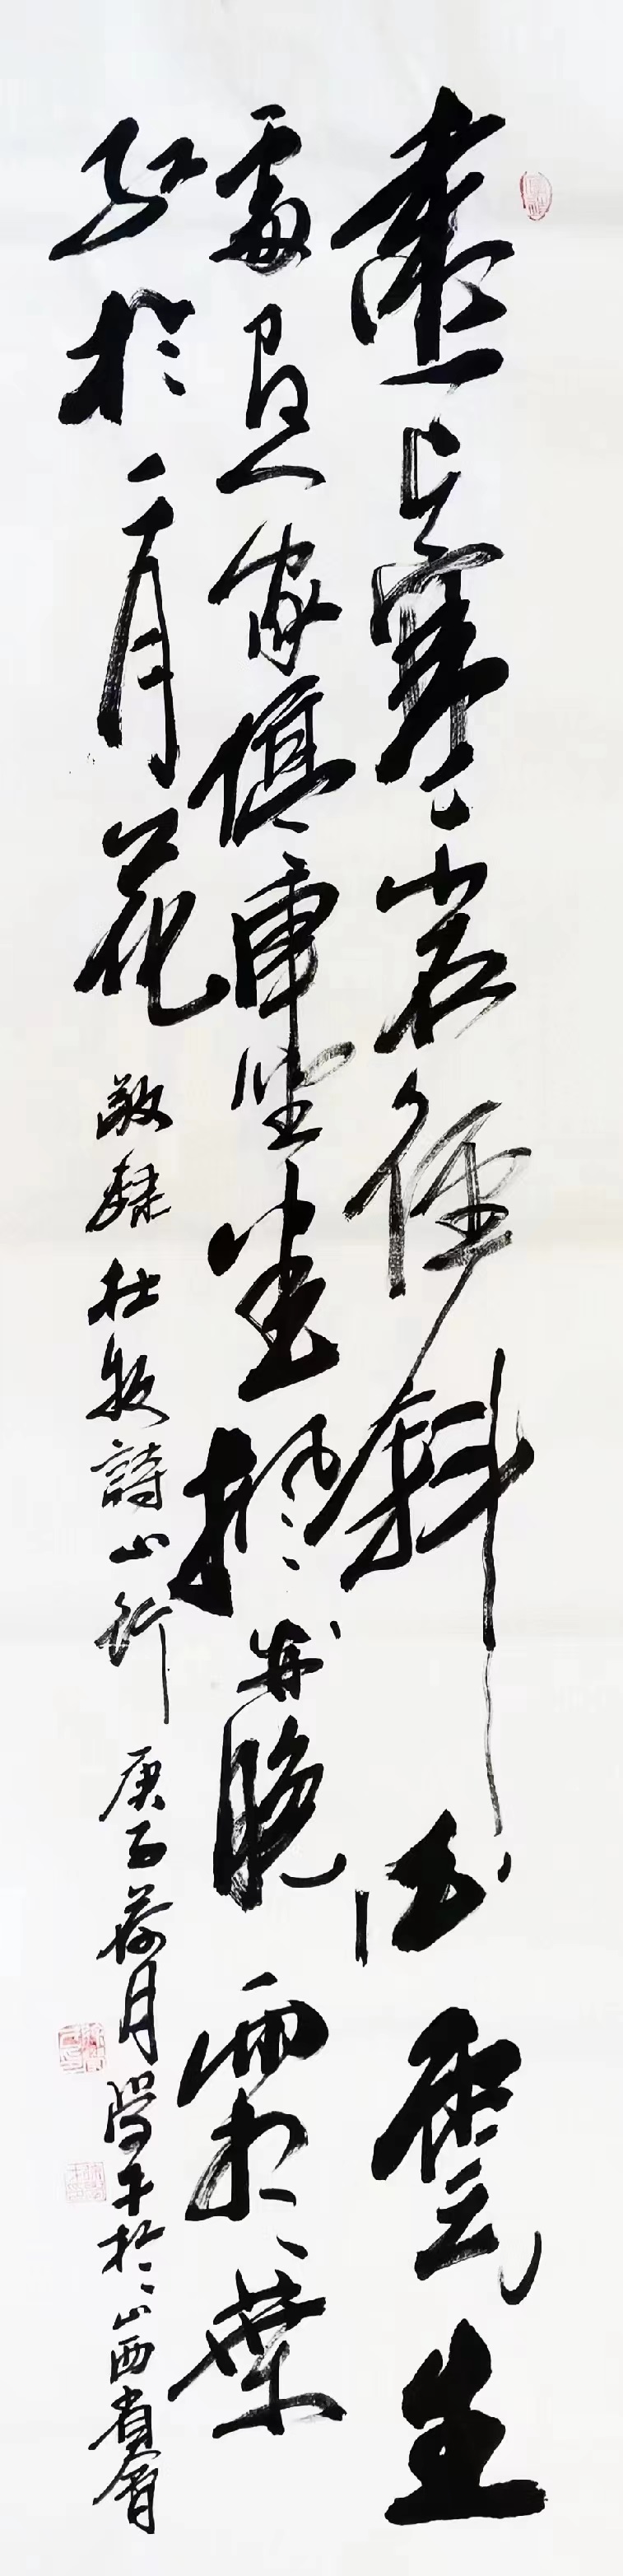 遠上寒山石徑斜白雲生
處有人家停車坐愛楓林晚霜葉
紅於二月花 敬錄杜牧詩山行 庚子荷月 於山西省會